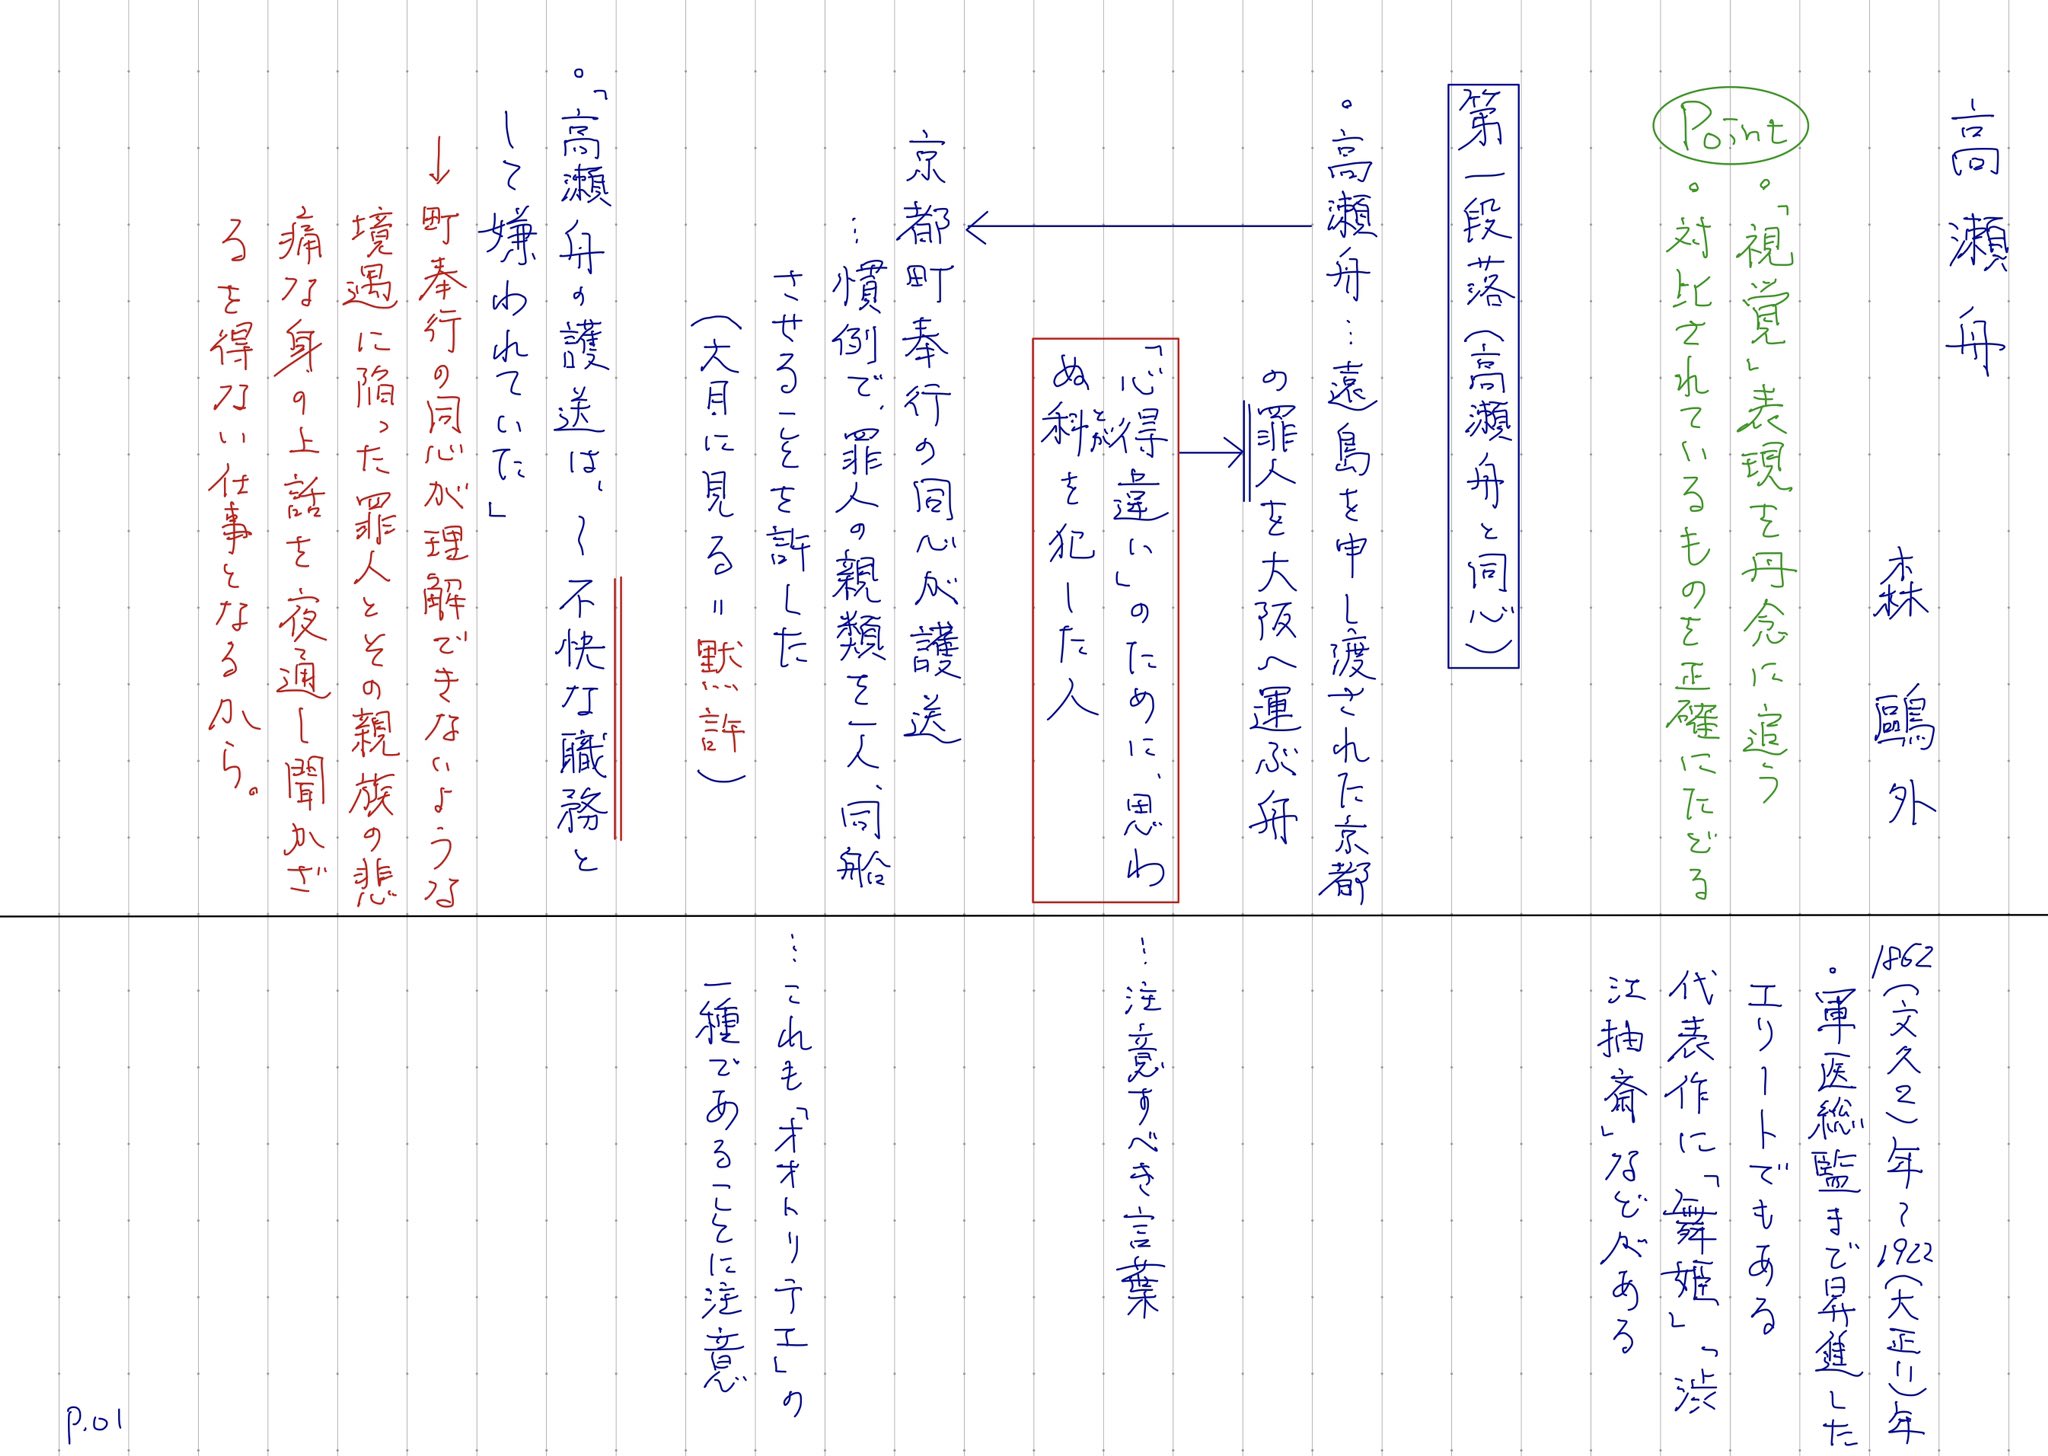 高瀬舟
森 鷗外
Point
。「視覚」表現を丹念に追う
。対比されているものを正確にたどる
第一段落(高瀬舟と同心)
。高瀬舟…遠島を申し渡された京都
の罪人を大阪へ運ぶ舟
「心得違い」のために、思わ
ぬ科を犯した人
とが
京都町奉行の同心が護送
…慣例で、罪人の親類を一人、同船
させることを許した
(大目に見る=黙許)
。「高瀬舟の護送は、〜不快な職務と
して嫌われていた」
→町奉行の同心が理解できないような
境遇に陥った罪人とその親族の悲
痛な身の上話を夜通し聞かざ
るを得ない仕事となるから。
1862(文久2)年〜1922(大正11)年
。軍医総監まで昇進した
エリートでもある
代表作に「舞姫」「渋
江抽斎」などがある
…注意すべき言葉
…これも「オオトリテエ」の
一種であることに注意
P.01